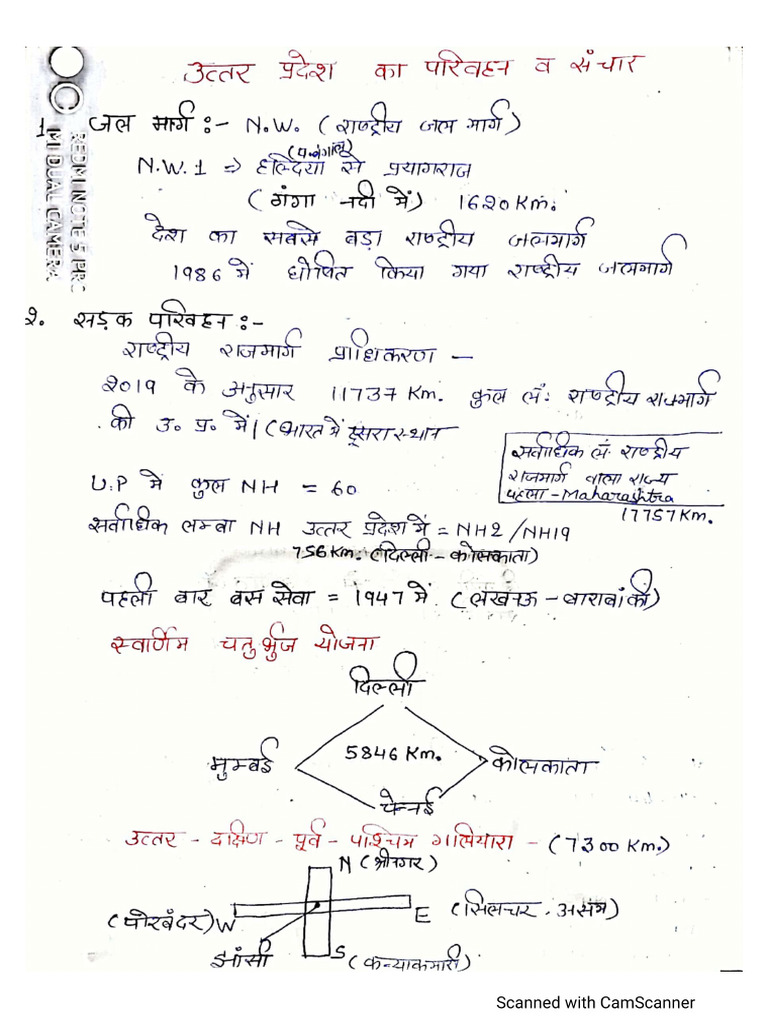 उत्तर प्रदेश का परिवहन व संचार
1. जल मार्ग :- N.W. (राष्ट्रीय जल मार्ग)
(प.बंगाल)
N.W.1 ⇒ हल्दिया से प्रयागराज
(गंगा नदी में) 1620 Km.
देश का सबसे बड़ा राष्ट्रीय जलमार्ग
1986 में घोषित किया गया राष्ट्रीय जलमार्ग
REDMI NOTE 5 PRO
MI DUAL CAMERA
2. सड़क परिवहन :-
राष्ट्रीय राजमार्ग प्राधिकरण -
2019 के अनुसार 11737 Km. कुल लं. राष्ट्रीय राजमार्ग
की उ. प्र. में। (भारत में दूसरा स्थान
सर्वाधिक लं. राष्ट्रीय
राजमार्ग वाला राज्य
पहला - Maharashtra
17757 Km.
U.P में कुल NH = 60
सर्वाधिक लम्बा NH उत्तर प्रदेश में = NH2/NH19
756 Km. (दिल्ली - कोलकाता)
पहली बार बस सेवा = 1947 में (लखनऊ - बाराबांकी)
स्वार्णिम चतुर्भुज योजना
दिल्ली
मुम्बई 5846 Km. कोलकाता
चेन्नई
उत्तर - दक्षिण - पूर्व - पश्चिम गलियारा - (7300 Km.)
N (श्रीनगर)
(पोरबंदर) W E (सिलचर - असम)
झांसी S (कन्याकुमारी)
Scanned with CamScanner